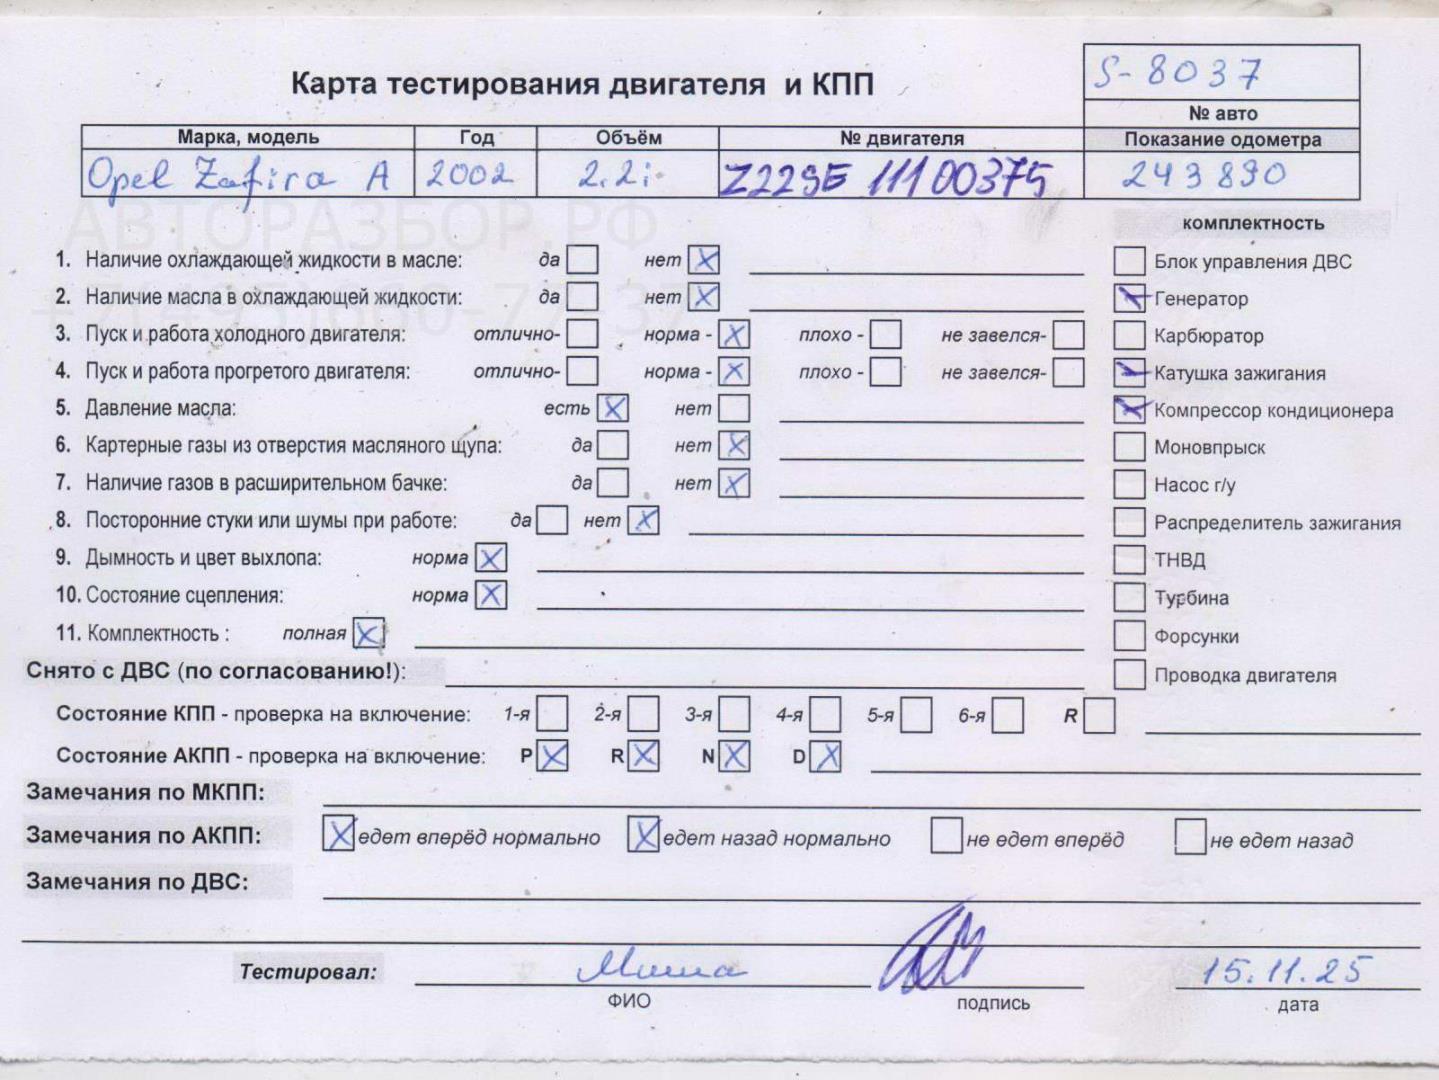 S-8037
Карта тестирования двигателя и КПП
№ авто
Марка, модель Год Объём № двигателя Показание одометра
Opel Zafira A 2002 2.2i Z22SE 11100375 243890
АВТОРАЗБОР.РФ
комплектность
1. Наличие охлаждающей жидкости в масле: да нет X
Блок управления ДВС
2. Наличие масла в охлаждающей жидкости: да нет X
X Генератор
+7(495)660-77-37
3. Пуск и работа холодного двигателя: отлично- норма - X плохо - не завелся-
Карбюратор
4. Пуск и работа прогретого двигателя: отлично- норма - X плохо - не завелся-
X Катушка зажигания
5. Давление масла: есть X нет
X Компрессор кондиционера
6. Картерные газы из отверстия масляного щупа: да нет X
Моновпрыск
7. Наличие газов в расширительном бачке: да нет X
Насос г/у
8. Посторонние стуки или шумы при работе: да нет X
Распределитель зажигания
9. Дымность и цвет выхлопа: норма X
ТНВД
10. Состояние сцепления: норма X
Турбина
11. Комплектность : полная X
Форсунки
Снято с ДВС (по согласованию!):
Проводка двигателя
Состояние КПП - проверка на включение: 1-я 2-я 3-я 4-я 5-я 6-я R
Состояние АКПП - проверка на включение: P X R X N X D X
Замечания по МКПП:
Замечания по АКПП: X едет вперёд нормально X едет назад нормально не едет вперёд не едет назад
Замечания по ДВС:
Тестировал: Миша 15.11.25
ФИО подпись дата